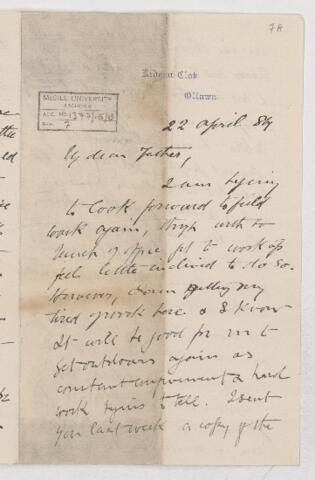 7A
Rideau Club
Ottawa
McGILL UNIVERSITY
ARCHIVES
ACC. NO. 1377/
REF. 7
22 April 84
My dear Father,
I am trying
to look forward to field
work again, though with so
much office to work up
feel little inclined to do so.
However, I am getting very
tired of work here & I know
it will be good for me to
get outdoors again as
constant confinement & hard
work begins to tell. I sent
you last week a copy of the